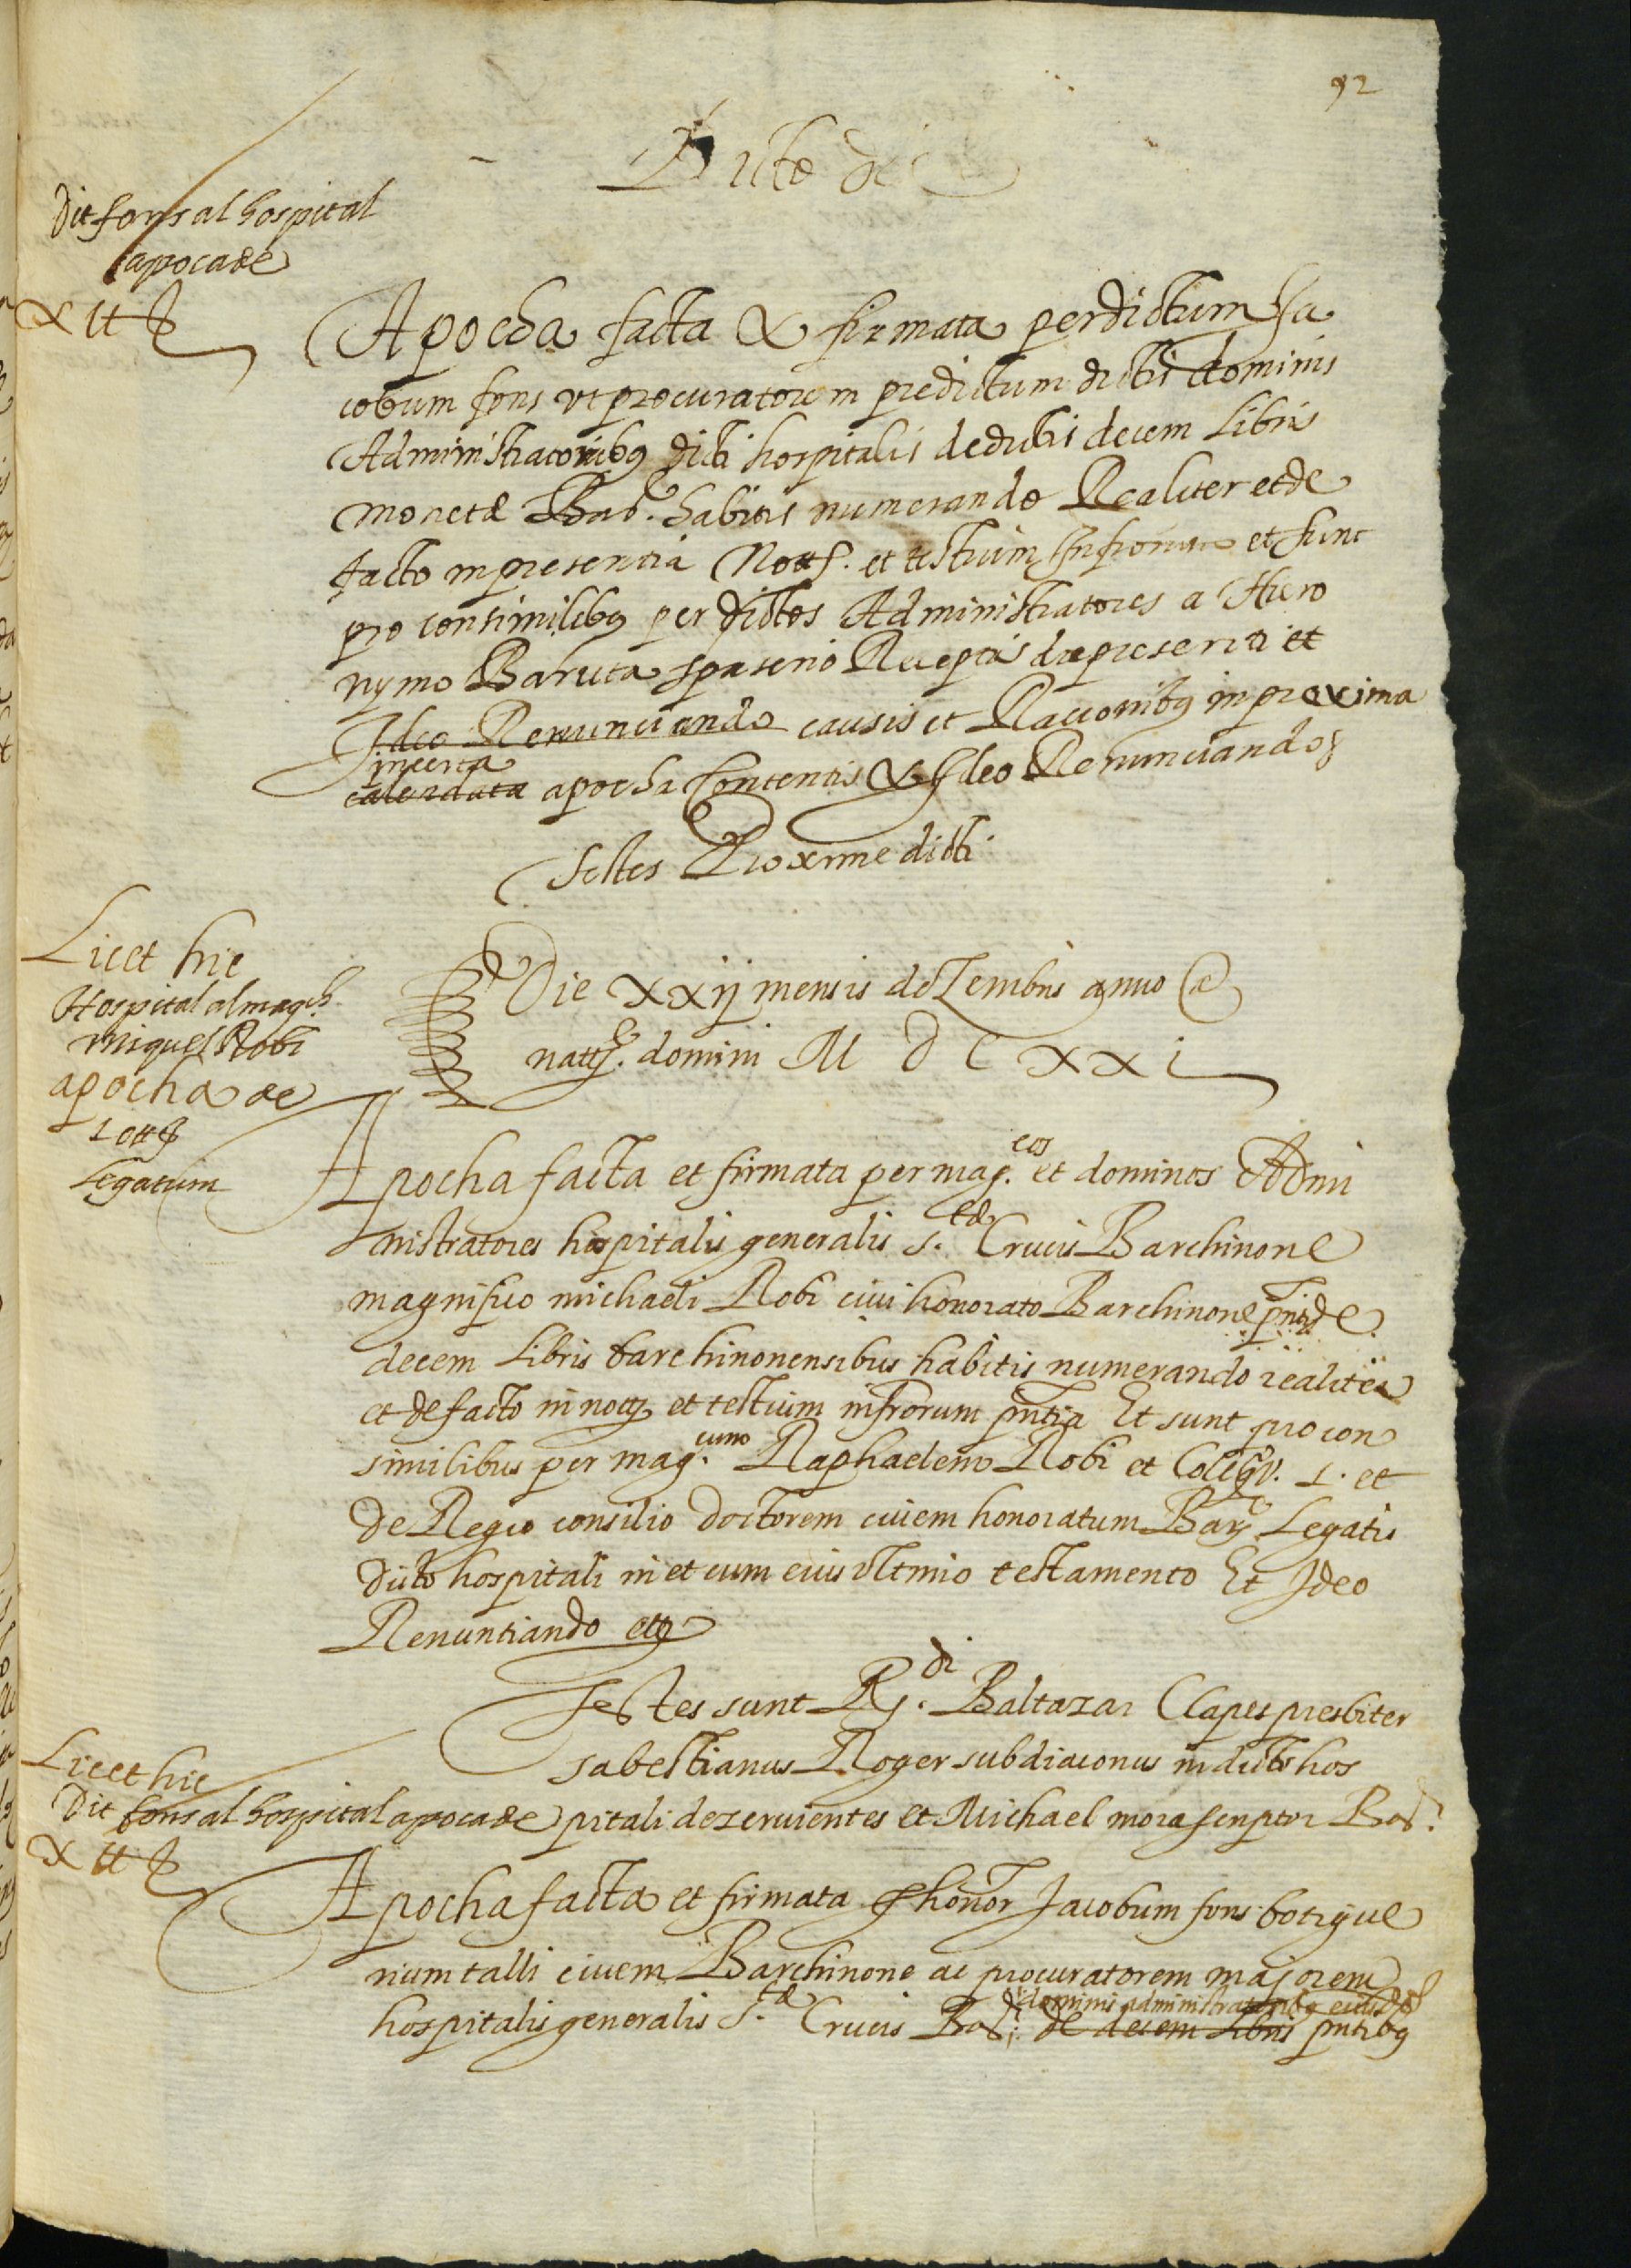 92
Dicto die
Dit fons al hospital
apoca de
X ll B
Apocha facta & firmata per dictum Ja
cobum fons vt procuratorem predictum dictis dominis
Administratoribus dicti hospitalis de dictis decem Libris
monete Bar.e habitis numerando Realiter et de
facto in presentia Nott. et testium Infrorum et sunt
pro consimilibus per dictos Administratores a Hiero
nymo Baruta spaserio Receptis de presenti et
Ideo Renunciando causis et Racionibus in proxima
incerta
calendata apocha contentis & Ideo Renunciando
testes Proxime dicti
Licet hic
Hospital al mag.ch
miquel Robi
apocha de
10 ll B
Legatum
Die xxij mensis deZembris anno a
natt. domini M D C x x i
Apocha facta et firmata per mag.cos et dominos Admi
nistratores hospitalis generalis S.te Crucis Barchinone
magnifico michaeli Robi ciui honorato Barchinone
decem Libris barchinonensibus habitis numerando realiter
et de facto in nott et testium infrorum pntia Et sunt pro con
similibus per mag.cum Raphaelem Robi et 
de Regio consilio doctorem ciuem honoratum Bar Legatis
dicto hospitali in et cum eius vltimo testamento Et Ideo
Renuntiando etc
Testes sunt R.di Baltazar Clapes presbiter
sabestianus Roger subdiaconus in dicto hos
pitali dezeruientes et Michael mora scriptor Bar.
Licet hic
Dit fons al hospital apoca de
X ll B
Apocha facta et firmata p honor Jacobum fons botigue
rium talli ciuem Barchinone ac procuratorem majorem
dominis administratoribus
hospitalis generalis S.te Crucis Bar. de decem Libris pntibus